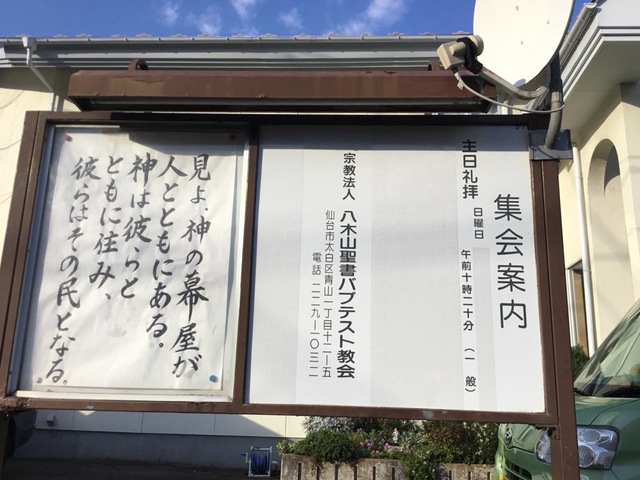 集会案内
主日礼拝 日曜日 午前十時二十分 (一般)
宗教法人 八木山聖書バプテスト教会
仙台市太白区青山一丁目十二ー五
電話 二二九ー一〇三二
見よ、神の幕屋が
人とともにある。
神は彼らと
ともに住み、
彼らはその民となる。